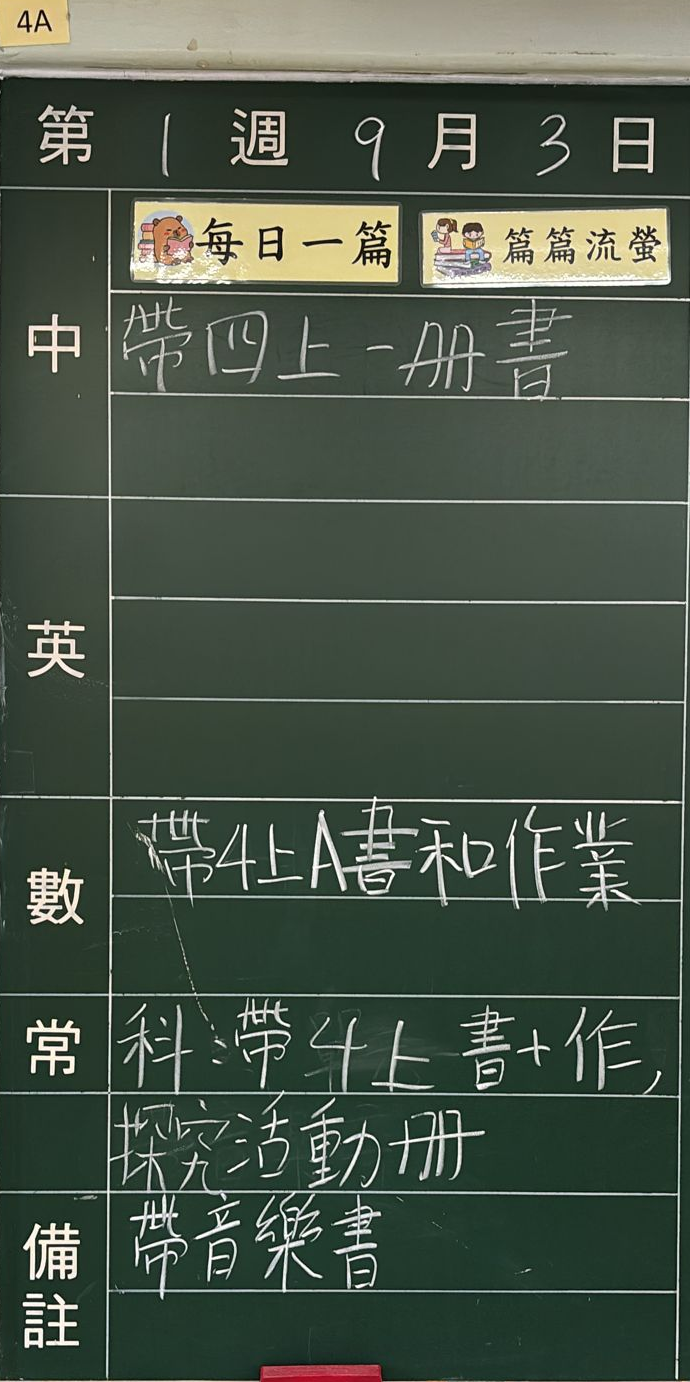 4A
第 1 週 9 月 3 日
每日一篇 篇篇流螢
中 帶四上一册書
英
數 帶4上A書和作業
常 科:帶4上書+作,
探究活動册
備註 帶音樂書